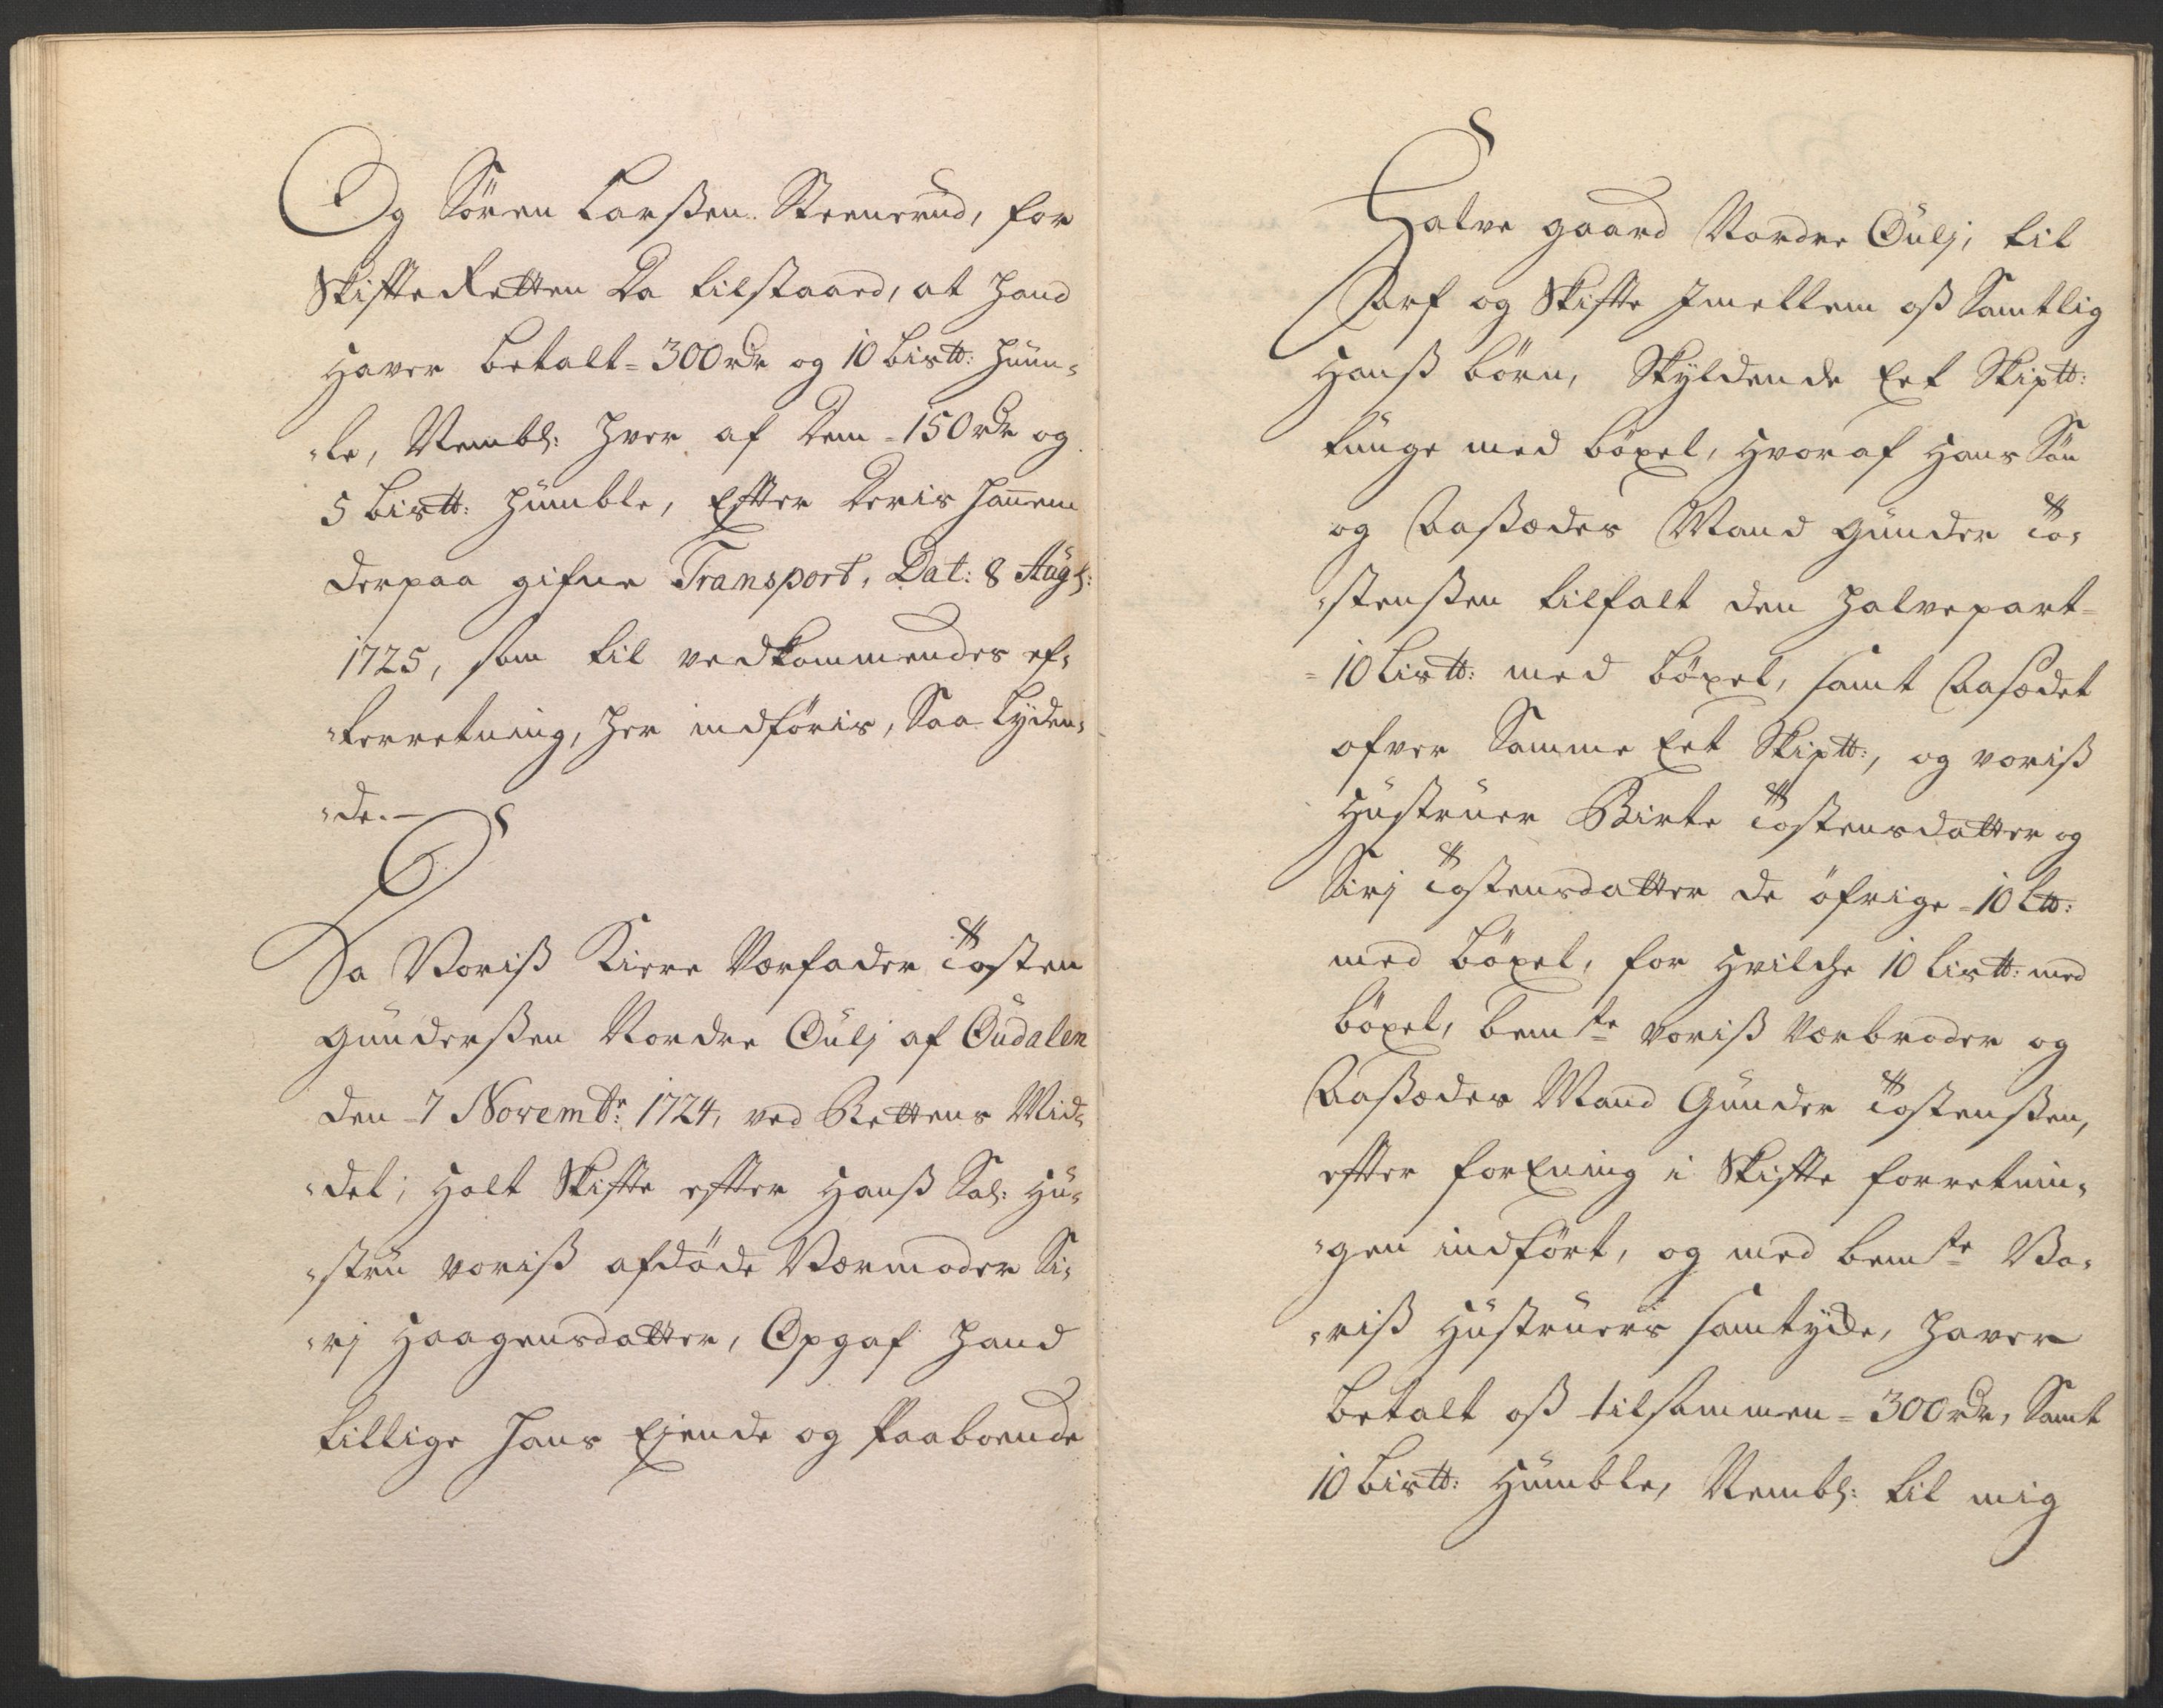 Og Sören Larßen Steenerud, for
Skiffte Retten Da tilstaaed, at Hand
Haver betalt = 300 rdr og 10 Lis℔: Hum-
-le, Nembl: Hver af Dem = 150 rdr og
5 Lis℔: Humble, Efter Deris Hannem
derpaa gifne Transport, Dat: 8 Aug:
1725, som til vedkommendes ef-
-terretning, her indføris, Saa Lyden-
-de. —
Da Voriß Kiere Værfader Tosten
Gunderßen Nordre Oulj af Oudalen
den 7 Novembr: 1724, ved Rettens Mid-
-del, Holt Skiffte effter Hanß Sal: Hu-
-stru voriß afdöde Værmoder Si-
-rj Haagensdatter, Opgaf Hand
tillige Hans Ejende og Paaboende
Halve gaard Nordre Oulj, til
Arf og Skiffte Imellem oß Samtlig
Hanß börn, Skyldende Eet Skip℔:
tunge med böxel, Hvoraf Hans Sön
og Aaßædes Mand Gunder To-
-stenßen tilfalt den Halvepart
= 10 Lis℔: med böxel, samt Aasædet
ofver Samme Eet Skip℔:, og voriß
Hustruer Birte Tostensdatter og
Sirj Tostensdatter de öfrige = 10 L℔:
med böxel, for Hvilche 10 Lis℔: med
böxel, bemte voriß Værbroder og
Aaßædes Mand Gunder Tostenßen,
effter forEning i Skiffte forretnin-
-gen indført, og med bemte Vo-
-riß Hustruers samtyche, Haver
betalt oß tilsammen = 300 rdr, Samt
10 Lis℔: Humble, Nembl: til mig